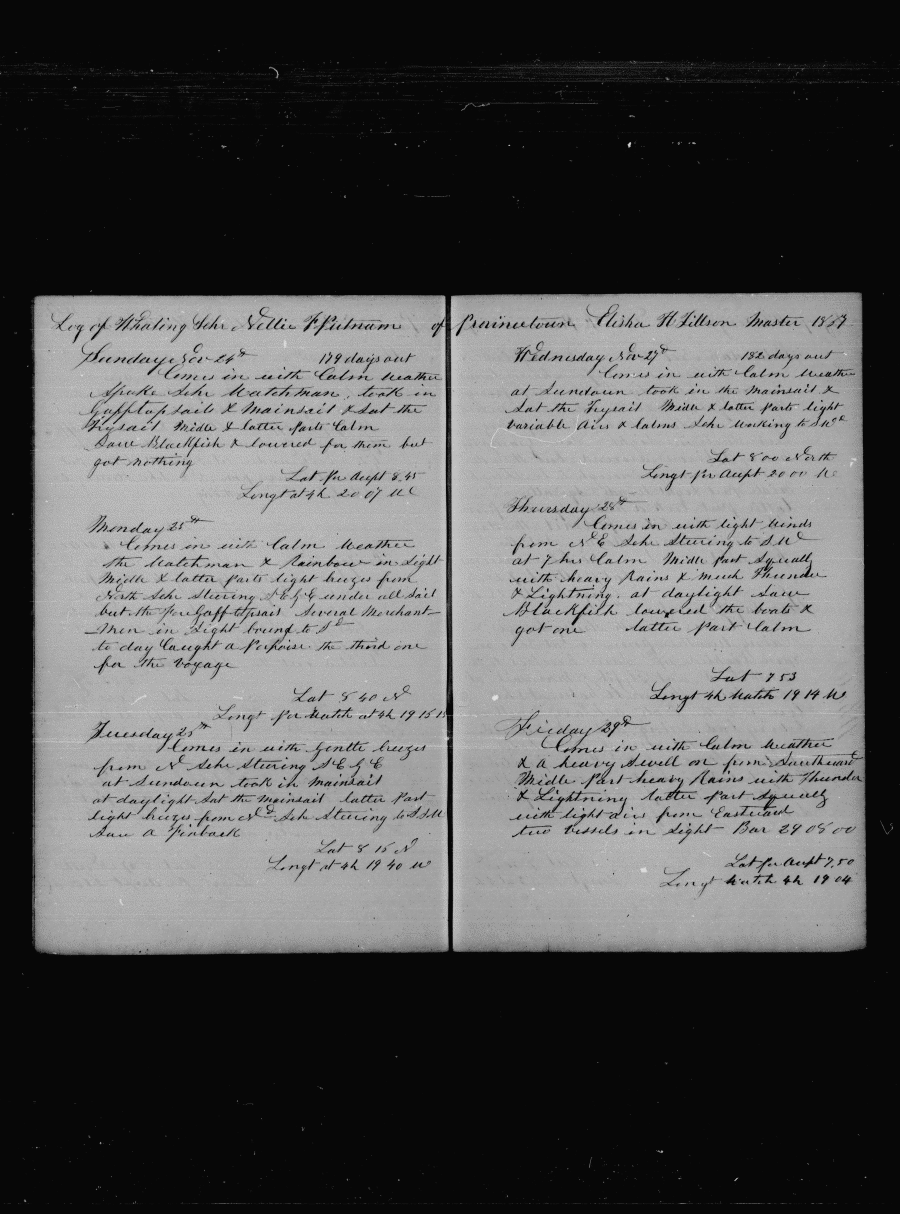 Log of Whaling Schr Nellie F Putnam of Provincetown Elisha H Tillson Master 1867
Sunday Nov 24th 179 days out
Comes in with Calm weather
Spoke Schr Watchman, took in
Gafftopsails & Mainsail & Sat the
Trysail Midle & latter Parts Calm
Saw Blackfish & lowered for them but
got nothing
Lat Per Acupt 8.45
Longt at 4h 20 07 W
Monday 25th
Comes in with Calm Weather
the Watchman & Rainbow in Sight
Midle & latter Parts light breezes from
North Schr Steering S E & E under all Sail
but the Fore Gafftopsail Several Merchant
Men in Sight bound to Sd
to day Caught a Porpoise the third one
for the Voyage
Lat 8 40 N
Longt Per Watch at 4h 19 15 15
Tuesday 25th
Comes in with Gentle breezes
from N Schr Steering S E & E
at Sundown took in Mainsail
at daylight Sat the Mainsail latter Part
light breezes from Nd Schr Steering to S S W
Saw a Finback
Lat 8 15 N
Longt at 4h 19 40 W
Wednesday Nov 27th 182 days out
Comes in with Calm Weather
at Sundown took in the Mainsail &
Sat the Trysail Midle & latter Parts light
variable Airs & Calms Schr Working to SWd
Lat 8 00 North
Longt Per Acupt 20 00 W
Thursday 28th
Comes in with light Winds
from N E Schr Steering to S W
at 7 hrs Calm Midle Part Squally
with heavy Rains & much Thunder
& Lightning. at daylight Saw
Blackfish lowered the boats &
got one latter Part Calm
Lat 7 53
Longt 4h Watch 19 14 W
Friday 29th
Comes in with Calm Weather
& a heavy Swell on from Southward
Midle Part heavy Rains with Thunder
& Lightning latter Part Squally
with light airs from Eastward
two vessels in Sight Bar 29 08 00
Lat Per Acupt 7,50
Longt Watch 4h 19 04